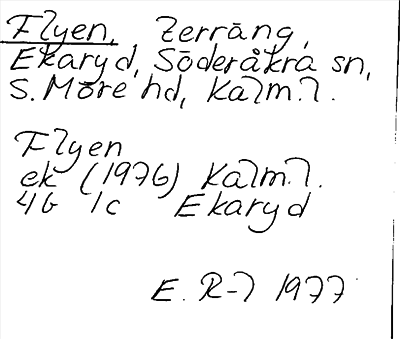 Flyen, Terräng,
Ekaryd, Söderåkra sn,
S. Möre hd, Kalm. l.
Flyen
ek (1976) Kalm. l.
4G 1c Ekaryd
E. R-l 1977